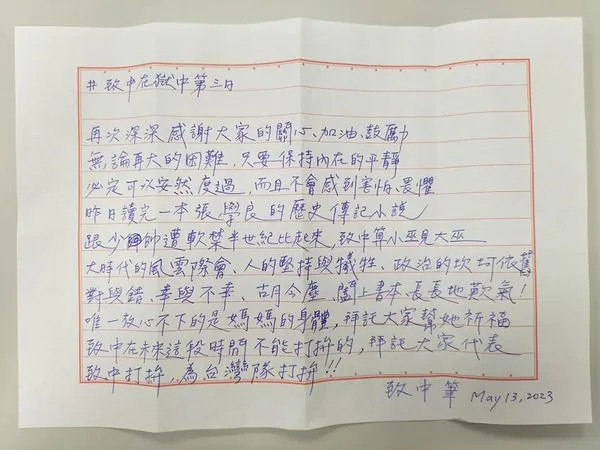 #致中在獄中第三日
再次深深感謝大家的關心、加油、鼓勵
無論再大的困難，只要保持內在的平靜
必定可以安然度過，而且不會感到害怕、畏懼
昨日讀完一本張學良的歷史傳記小說
跟少帥遭軟禁半世紀比起來，致中算小巫見大巫
大時代的風雲際會、人的堅持與犧牲、政治的坎坷依舊
對與錯、幸與不幸、古月今塵、闔上書本長長地歎氣！
唯一放心不下的是媽媽的身體，拜託大家幫她祈福
致中在未來這段時間不能打拚的，拜託大家代表
致中打拚、為台灣隊打拚!!
致中筆 May 13, 2023